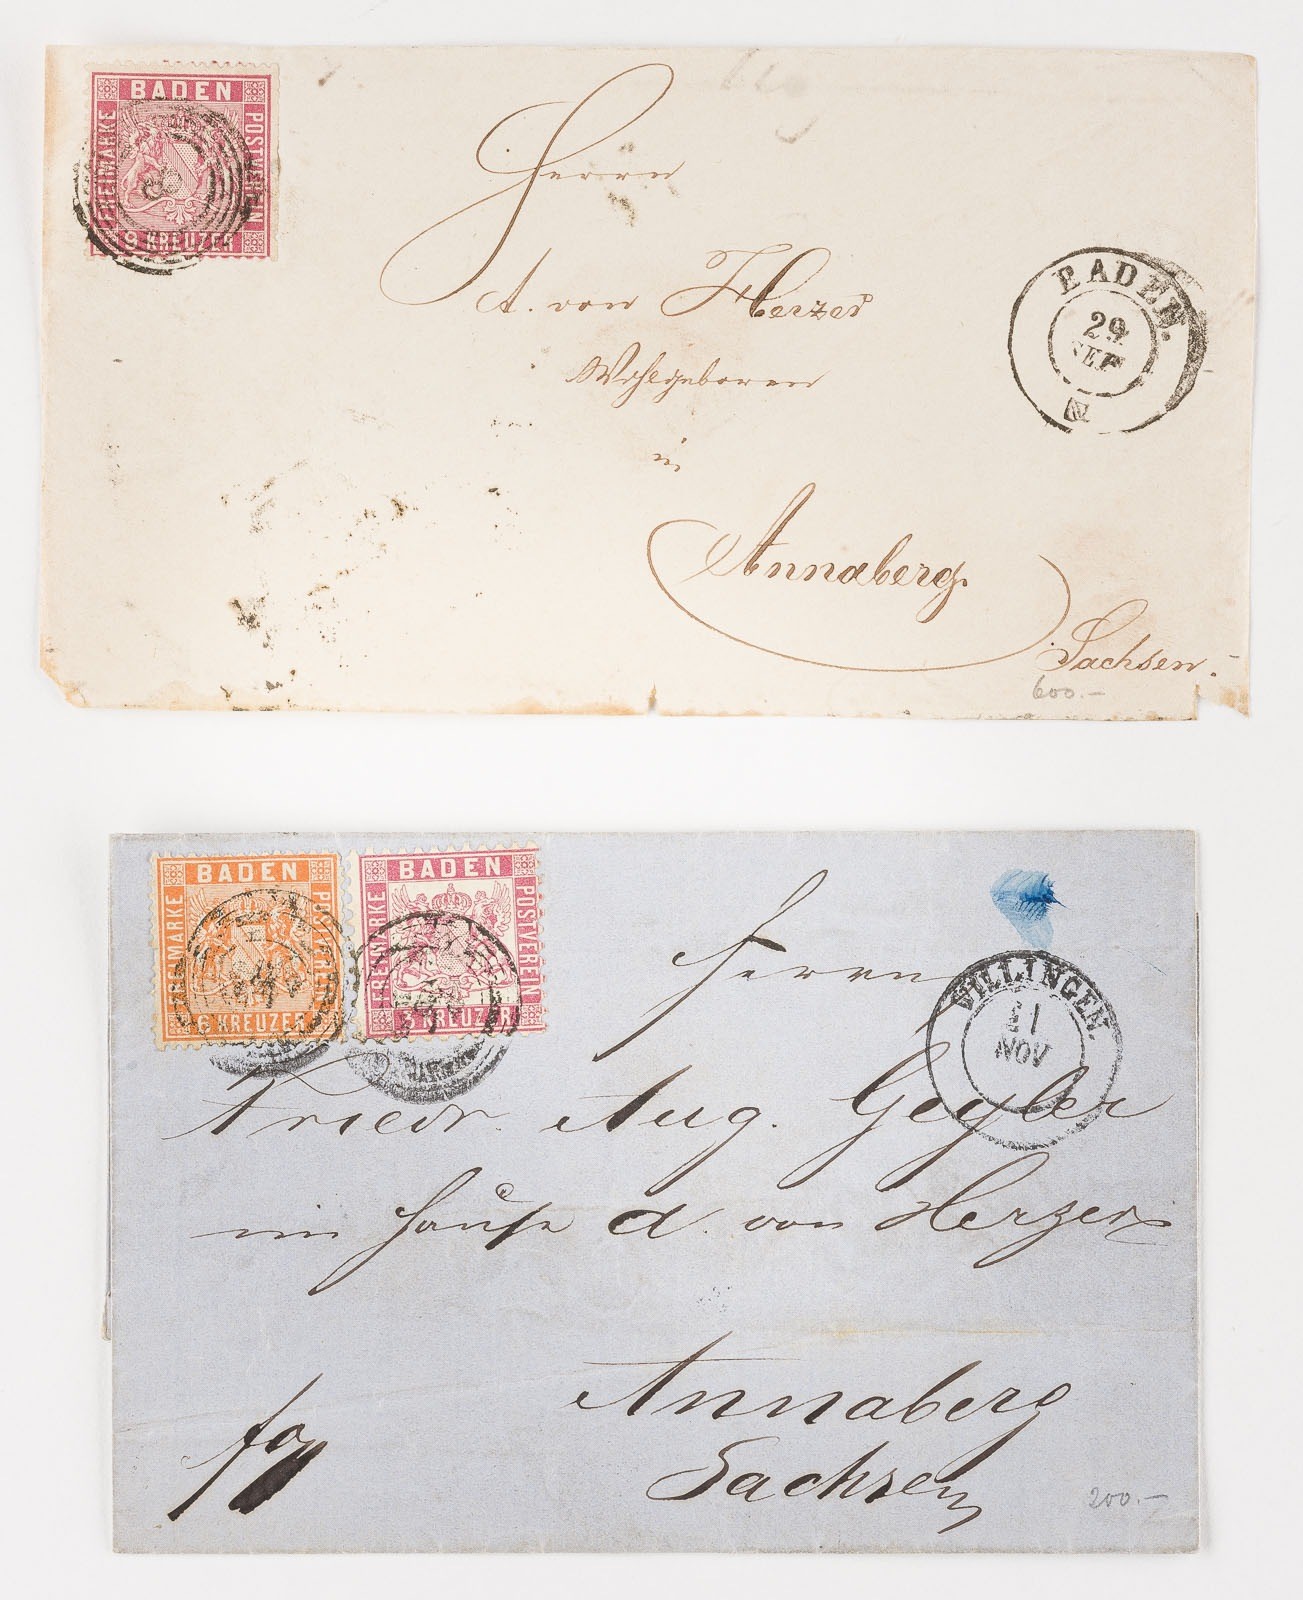 BADEN
FREIMARKE
POSTVEREIN
9 KREUZER
8
Herrn
A. von Herzer
Wohlgeboren
in
Annaberg.
Sachsen.
600.-
BADEN.
29
SEP
BADEN
FREIMARKE
POSTVEREIN
6 KREUZER
BADEN
FREIMARKE
POSTVEREIN
3 KREUZER
VILLINGEN
11
NOV
Herrn
Friedr. Aug. Geyler
im Hause A. von Herzer
Annaberg
Sachsen
200.-